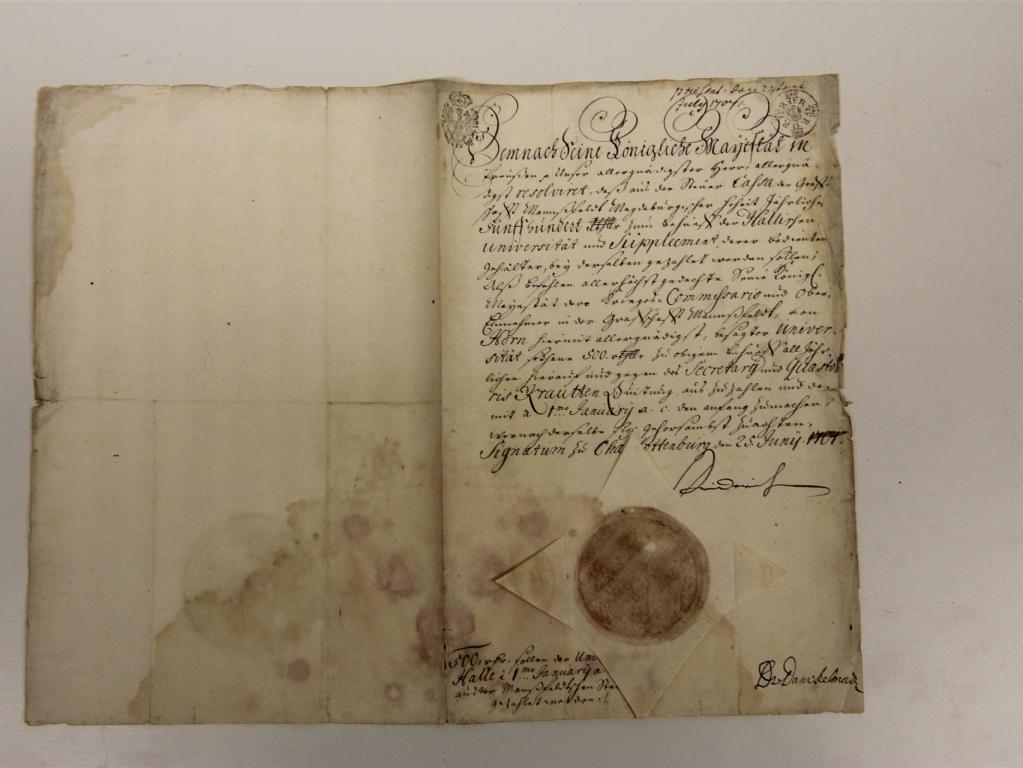 præsent: den
July 1707.
Demnach Seine Königliche Mayestät in
Preüßen Unser allergnädigster Herr, allergnä-
digst resolviret, daß aus der Steuer Cassa der Graff-
schafft Mannßfeldt Magdeburgischer Hoheit Jährlichen
Fünffhundert rthlr zum behueff der Hallischen
Universität und Supplement derer Bedienten
gehälter, bey derselben gezahlet werden sollen;
Alß befehlen allerhöchst gedachte Seine Königl.
Mayestät dero Krieges Commissario und Ober-
Einnehmer in der Graffschafft Mannßfeldt, von
Horn hiermit allergnädigst, besagter Univer-
sität sothane 500. rthlr zu obigem behueff all Jähr-
lichen hierauf und gegen des Secretary und Quæsto-
ris Krautten Quitung aus zu zahlen und da-
mit a 1.mo January a. c. den anfang zumachen,
wornach derselbe sich gehorsambst zu achten.
Signatum zu Cha ottenburg den 25. Junij. 1707.
Friderich
500. rthlr. sollen der Uni
Halle à 1.mo January a
aus der Manßfeldtschen Steu
gezahlet werden.